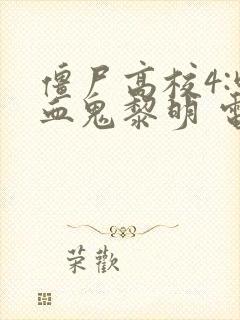 僵尸高校4:
血鬼黎明
荣歡